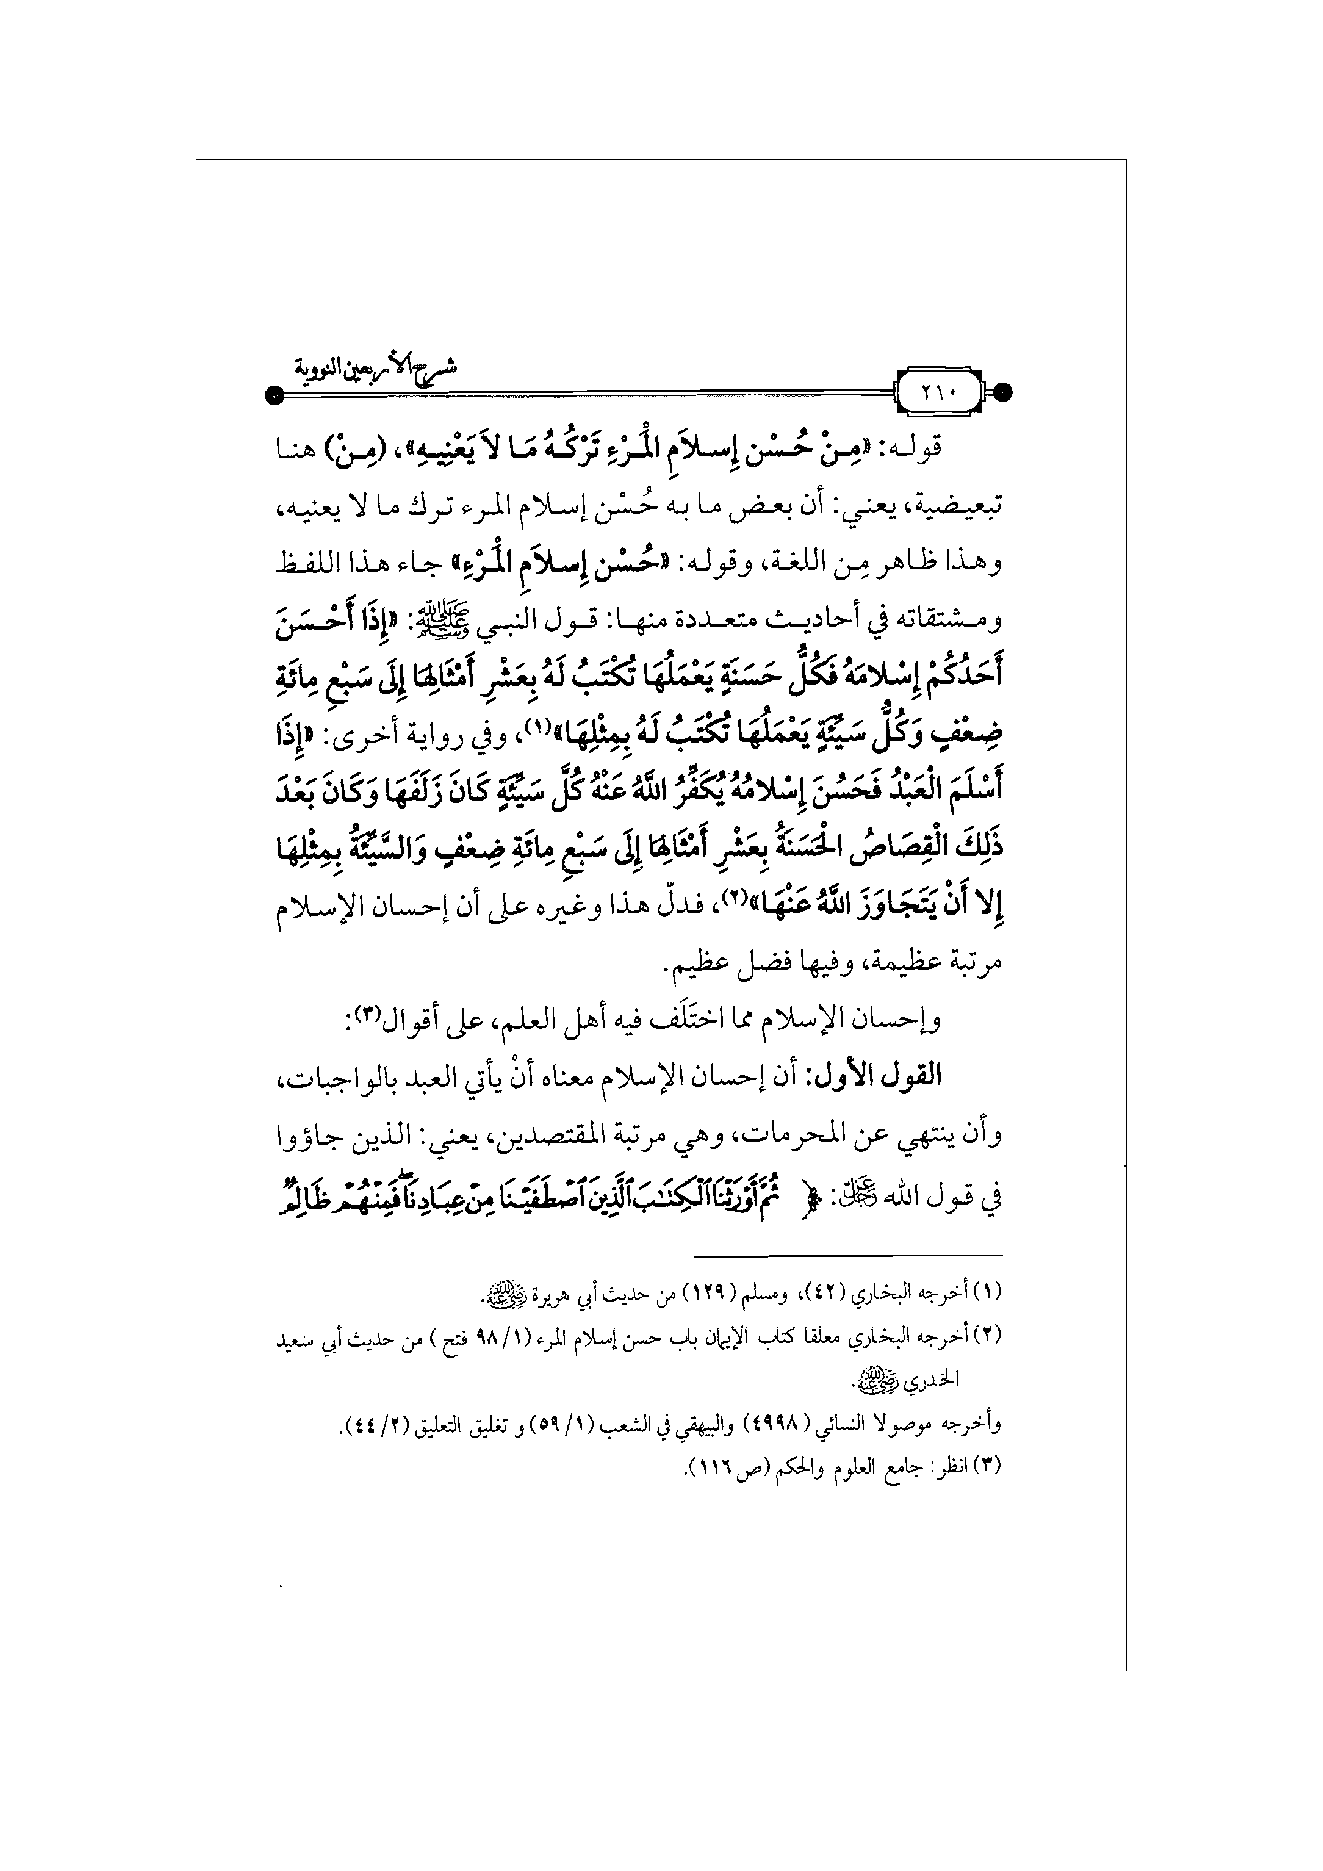 شرح الأربعين النووية
٢١٠
قوله: «مِنْ حُسْنِ إِسلاَمِ الْمَرْءِ تَرْكُهُ مَا لاَ يَعْنِيهِ»، (مِنْ) هنا
تبعيضية، يعني: أن بعض ما به حُسْن إسلام المرء ترك ما لا يعنيه،
وهذا ظاهر مِن اللغة، وقوله: «حُسْنِ إِسلاَمِ الْمَرْءِ» جاء هذا اللفظ
ومشتقاته في أحاديث متعددة منها: قول النبي ﷺ: «إِذَا أَحْسَنَ
أَحَدُكُمْ إِسْلامَهُ فَكُلُّ حَسَنَةٍ يَعْمَلُهَا تُكْتَبُ لَهُ بِعَشْرِ أَمْثَالِهَا إِلَى سَبْعِ مِائَةِ
ضِعْفٍ وَكُلُّ سَيِّئَةٍ يَعْمَلُهَا تُكْتَبُ لَهُ بِمِثْلِهَا»(١)، وفي رواية أخرى: «إِذَا
أَسْلَمَ الْعَبْدُ فَحَسُنَ إِسْلامُهُ يُكَفِّرُ اللَّهُ عَنْهُ كُلَّ سَيِّئَةٍ كَانَ زَلَفَهَا وَكَانَ بَعْدَ
ذَلِكَ الْقِصَاصُ الْحَسَنَةُ بِعَشْرِ أَمْثَالِهَا إِلَى سَبْعِ مِائَةِ ضِعْفٍ وَالسَّيِّئَةُ بِمِثْلِهَا
إِلا أَنْ يَتَجَاوَزَ اللَّهُ عَنْهَا»(٢)، فدلّ هذا وغيره على أن إحسان الإسلام
مرتبة عظيمة، وفيها فضل عظيم.
وإحسان الإسلام مما اختَلَف فيه أهل العلم، على أقوال(٣):
القول الأول: أن إحسان الإسلام معناه أنْ يأتي العبد بالواجبات،
وأن ينتهي عن المحرمات، وهي مرتبة المقتصدين، يعني: الذين جاؤوا
في قول الله ﷻ: ﴿ ثُمَّ أَوْرَثْنَا ٱلْكِتَٰبَ ٱلَّذِينَ ٱصْطَفَيْنَا مِنْ عِبَادِنَا ۖ فَمِنْهُمْ ظَالِمٌ
(١) أخرجه البخاري (٤٢)، ومسلم (١٢٩) من حديث أبي هريرة رضي الله عنه.
(٢) أخرجه البخاري معلقا كتاب الإيمان باب حسن إسلام المرء (٩٨/١ فتح ) من حديث أبي سعيد
الخدري رضي الله عنه.
وأخرجه موصولا النسائي (٤٩٩٨) والبيهقي في الشعب (٥٩/١) و تغليق التعليق (٤٤/٢).
(٣) انظر: جامع العلوم والحكم (ص١١٦).